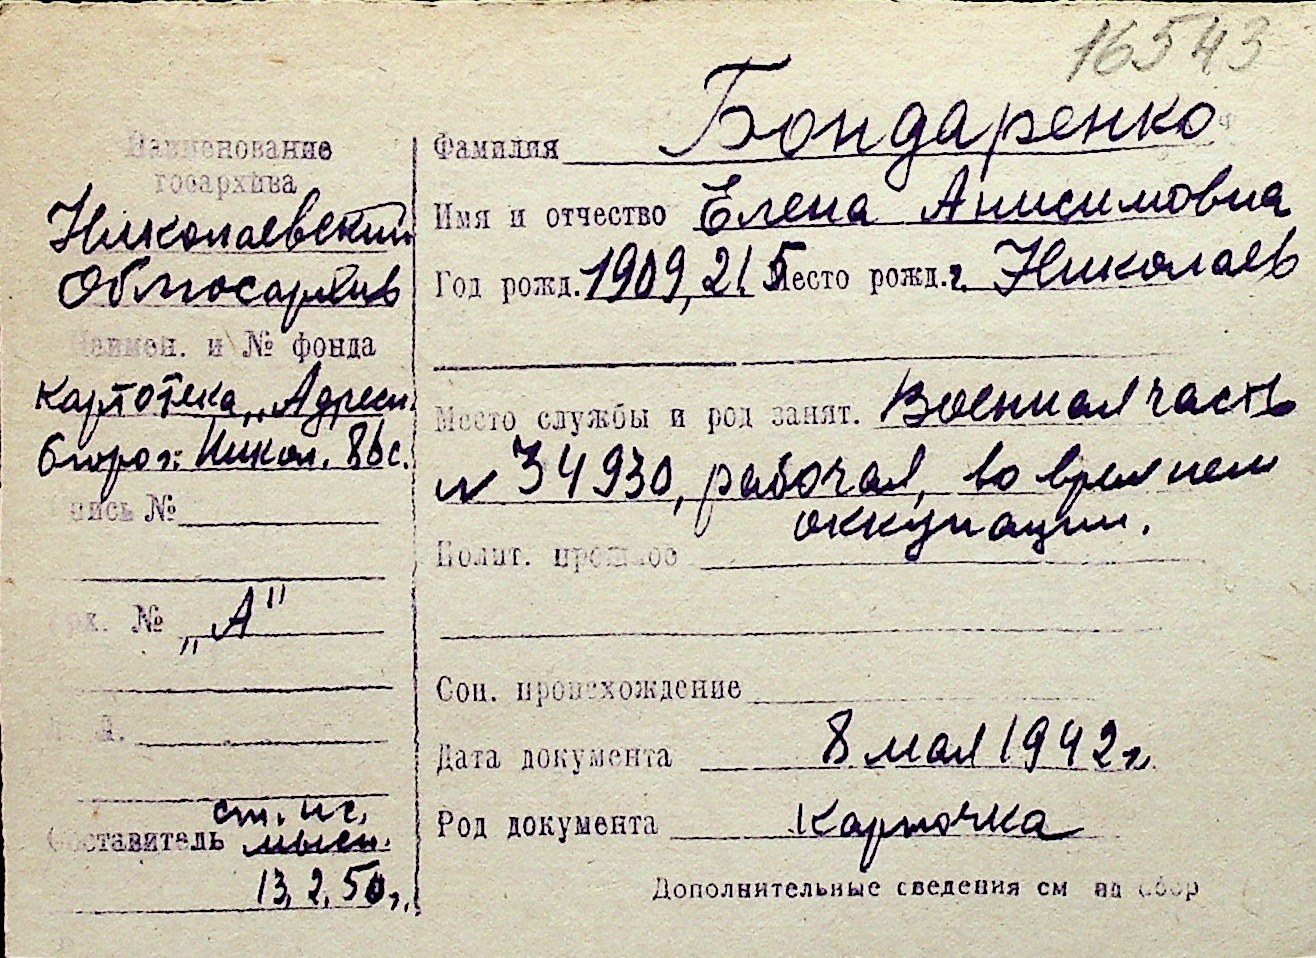 16543
Наименование
госархива
Николаевский
Облгосархив
Наимен. и № фонда
Картотека „Адресн.
бюро г. Никол.
Опись №
Арх. № „А"
Л. Л.
Составитель ст. н.с.
13.2.50 г.
Фамилия Бондаренко
Имя и отчество Елена Анисимовна
Год рожд. 1909, 21.5 Место рожд. г. Николаев
Место службы и род занят. Военная часть
№ 34930, рабочая, во время нем
оккупации.
Полит. прошлое
Соц. происхождение
Дата документа 8 мая 1942 г.
Род документа карточка
Дополнительные сведения см на обор